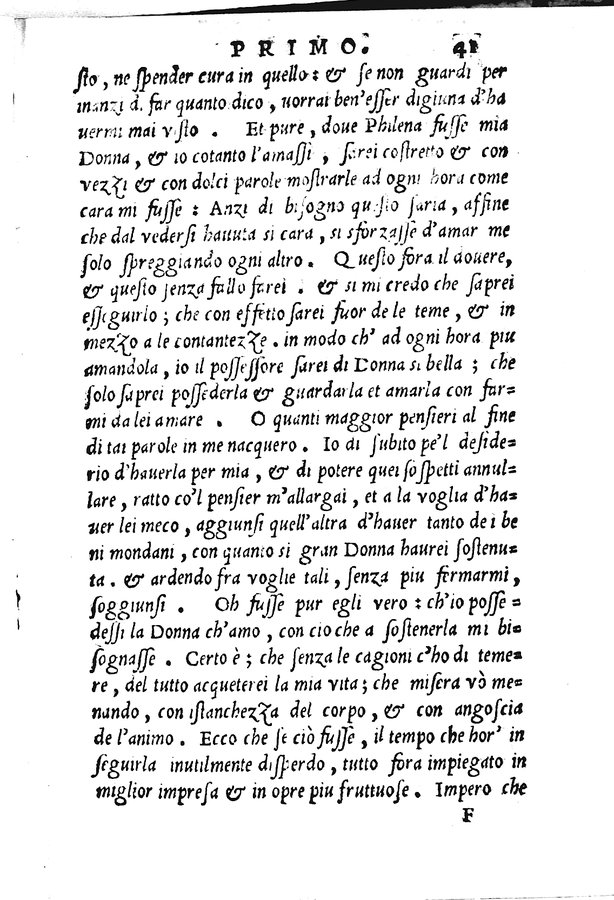 PRIMO. 41
sto, ne spender cura in quello: & se non guardi per
inanzi di far quanto dico, uorrai ben'esser digiuna d'ha
uermi mai visto. Et pure, doue Philena fusse mia
Donna, & io cotanto l'amassi, sarei costretto & con
vezzi & con dolci parole mostrarle ad ogni hora come
cara mi fusse: Anzi di bisogno questo saria, affine
che dal vedersi hauuta si cara, si sforzasse d'amar me
solo spreggiando ogni altro. Questo fora il douere,
& questo senza fallo farei. & si mi credo che saprei
esseguirlo; che con effetto sarei fuor de le teme, & in
mezzo a le contantezze. in modo ch' ad ogni hora piu
amandola, io il possessore sarei di Donna si bella; che
solo saprei possederla & guardarla et amarla con far=
mi da lei amare. O quanti maggior pensieri al fine
di tai parole in me nacquero. Io di subito pe'l deside=
rio d'hauerla per mia, & di potere quei sospetti annul=
lare, ratto co'l pensier m'allargai, et a la voglia d'ha=
uer lei meco, aggiunsi quell'altra d'hauer tanto de i be
ni mondani, con quanto si gran Donna haurei sostenu=
ta. & ardendo fra voglie tali, senza piu fermarmi,
soggiunsi. Oh fusse pur egli vero: ch'io posse=
dessi la Donna ch'amo, con cio che a sostenerla mi bi=
sognasse. Certo è; che senza le cagioni c'ho di teme=
re, del tutto acqueterei la mia vita; che misera vò me=
nando, con istanchezza del corpo, & con angoscia
de l'animo. Ecco che se ciò fusse, il tempo che hor' in
seguirla inutilmente disperdo, tutto fora impiegato in
miglior impresa & in opre piu fruttuose. Impero che
F